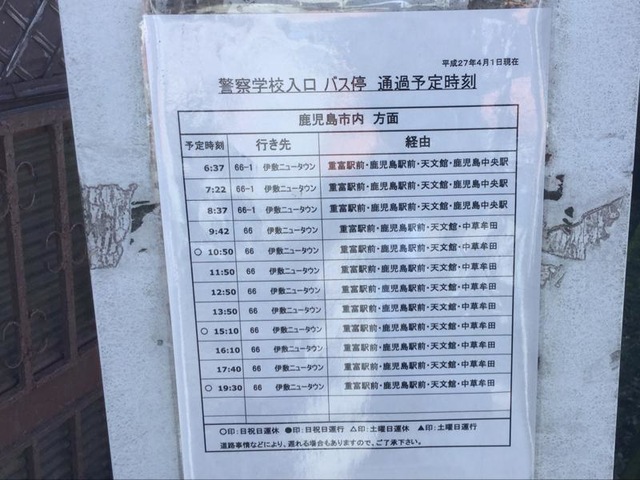 平成27年4月1日現在
警察学校入口 バス停 通過予定時刻
鹿児島市内 方面
予定時刻 行き先 経由
6:37 66-1 伊敷ニュータウン 重富駅前・鹿児島駅前・天文館・鹿児島中央駅
7:22 66-1 伊敷ニュータウン 重富駅前・鹿児島駅前・天文館・鹿児島中央駅
8:37 66-1 伊敷ニュータウン 重富駅前・鹿児島駅前・天文館・鹿児島中央駅
9:42 66 伊敷ニュータウン 重富駅前・鹿児島駅前・天文館・中草牟田
○ 10:50 66 伊敷ニュータウン 重富駅前・鹿児島駅前・天文館・中草牟田
11:50 66 伊敷ニュータウン 重富駅前・鹿児島駅前・天文館・中草牟田
12:50 66 伊敷ニュータウン 重富駅前・鹿児島駅前・天文館・中草牟田
13:50 66 伊敷ニュータウン 重富駅前・鹿児島駅前・天文館・中草牟田
○ 15:10 66 伊敷ニュータウン 重富駅前・鹿児島駅前・天文館・中草牟田
16:10 66 伊敷ニュータウン 重富駅前・鹿児島駅前・天文館・中草牟田
17:40 66 伊敷ニュータウン 重富駅前・鹿児島駅前・天文館・中草牟田
○ 19:30 66 伊敷ニュータウン 重富駅前・鹿児島駅前・天文館・中草牟田
○印:日祝日運休 ●印:日祝日運行 △印:土曜日運休 ▲印:土曜日運行
道路事情などにより、遅れる場合もありますので、ご了承下さい。